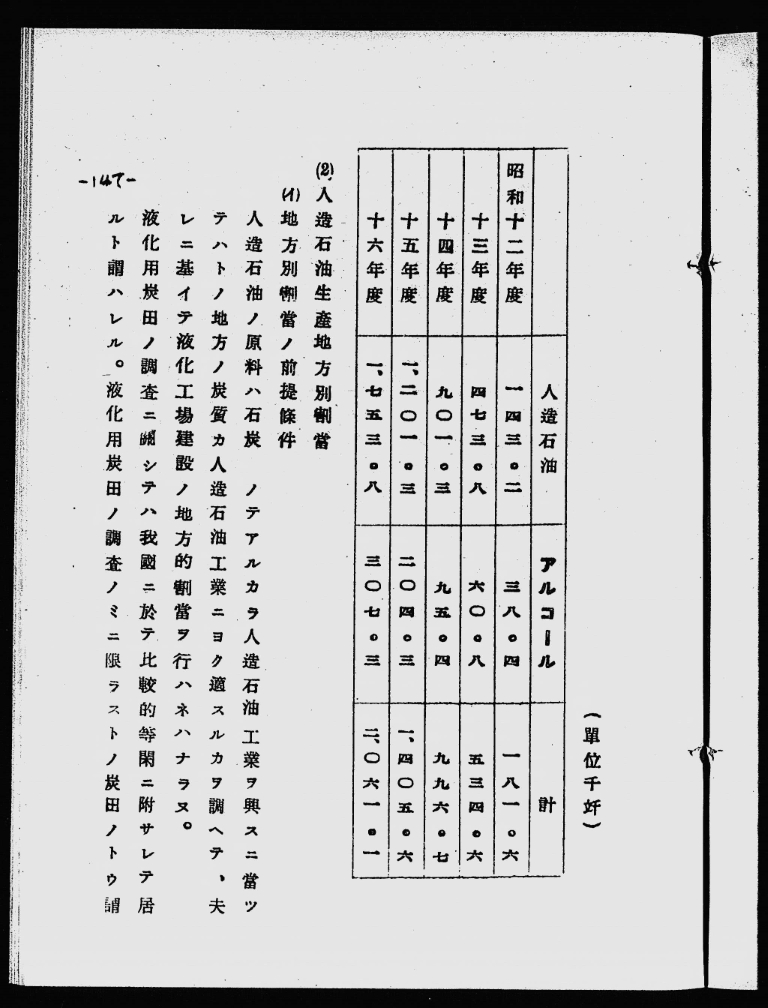 (單位千竏)
人造石油 アルコール 計
昭和十二年度 一四三。二 三八。四 一八一。六
十三年度 四七三。八 六〇。八 五三四。六
十四年度 九〇一。三 九五。四 九九六。七
十五年度 一、二〇一。三 二〇四。三 一、四〇五。六
十六年度 一、七五三。八 三〇七。三 二、〇六一。一
(2)人造石油生產地方別割當
(イ)地方別割當ノ前提條件
人造石油ノ原料ハ石炭ノテアルカラ人造石油工業ヲ興スニ當ツ
テハトノ地方ノ炭質カ人造石油工業ニヨク適スルカヲ調ヘテ、夫
レニ基イテ液化工場建設ノ地方的割當ヲ行ハネハナラヌ。
液化用炭田ノ調査ニ關シテハ我國ニ於テ比較的等閑ニ附サレテ居
ルト謂ハレル。液化用炭田ノ調査ノミニ限ラストノ炭田ノトウ謂
-147-